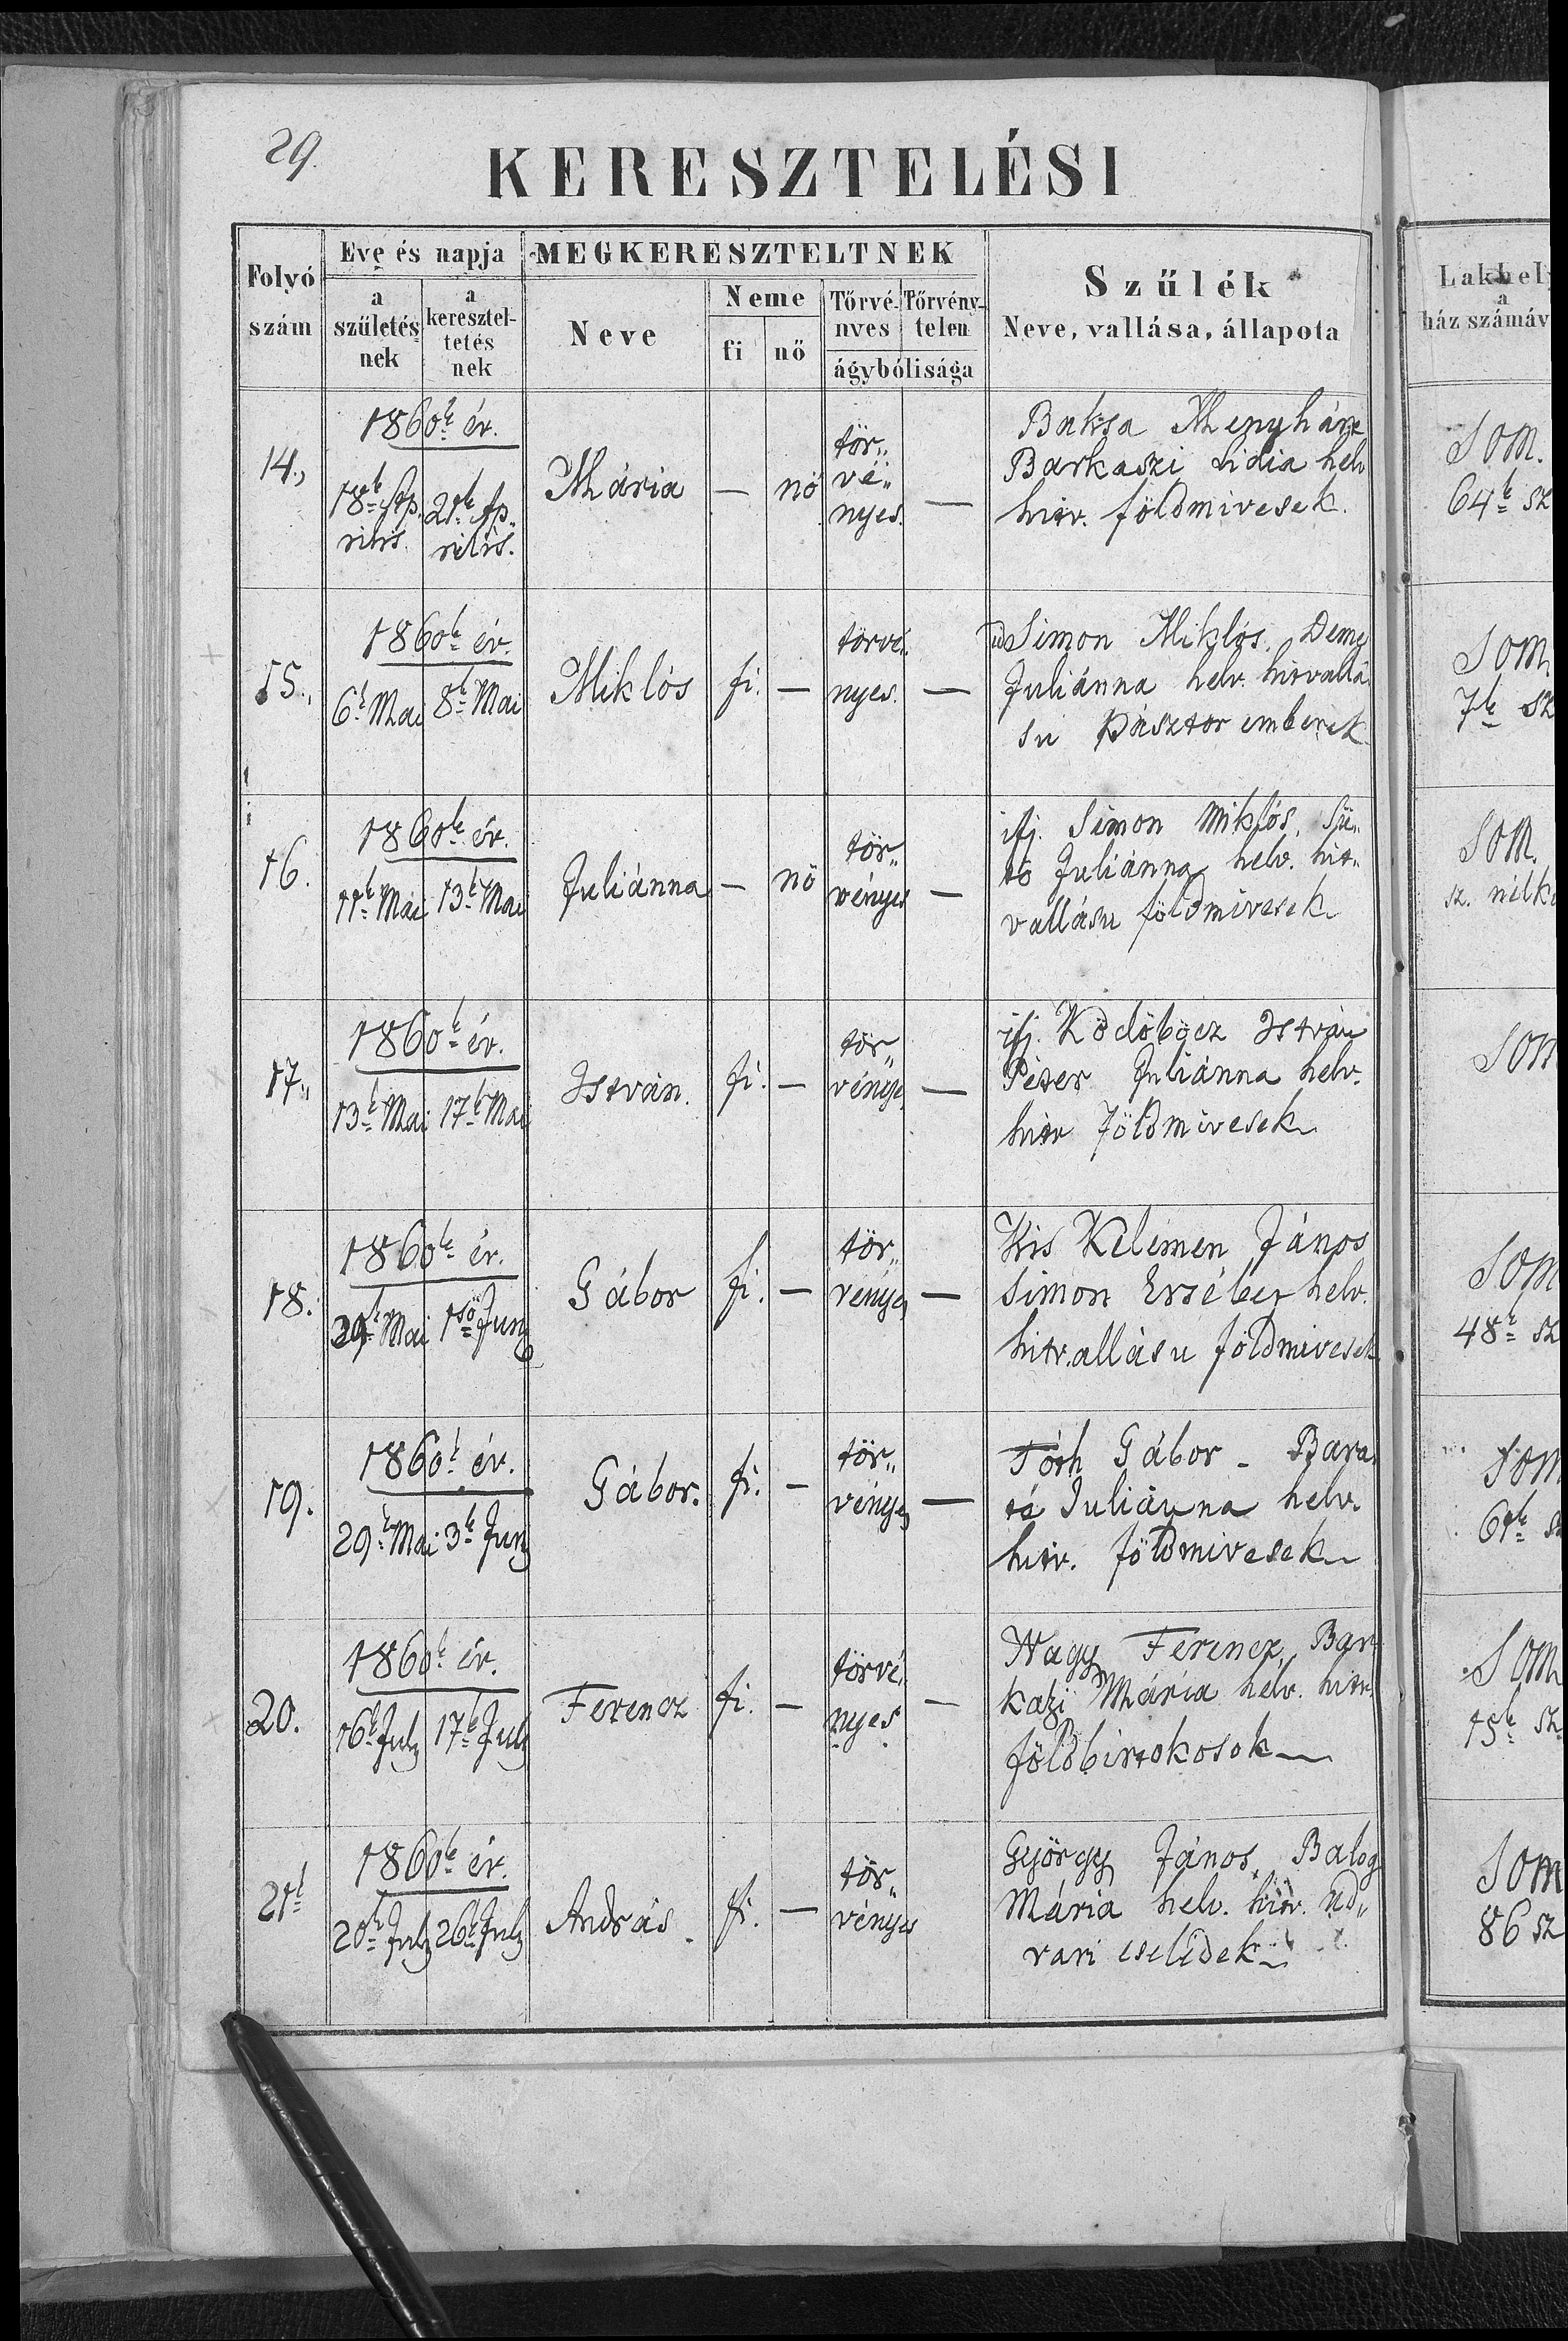 29.
KERESZTELÉSI
Folyó szám
Eve és napja
a születés nek
a keresztel- tetés nek
MEGKERESZTELTNEK
Neve
Neme
fi
nő
Törvé- nyes
Törvény- telen
ágybólisága
Szűlék
Neve, vallása, állapota
Lakhely
a
ház számáv
14.,
1860k év.
18k Áp. rilis.
21k Áp„ rilis.
Mária
—
nő
tör„
vé„
nyes.
—
Baksa Menyhárt
Barkaszi Lidia helv
hitv. földmivesek.
SOM.
64k sz
15.,
1860k év.
6k Mai
8k Mai
Miklós
fi.
—
törvé„
nyes.
—
id Simon Miklós. Deme
Juliánna helv. hitvallá
su Pásztor emberek
SOM.
7k sz
16.
1860k év.
11k Mai
13k Mai
Juliánna
—
nő
tör„
vényes
—
ifj. Simon Miklós, Sü„
tö Juliánna helv. hit„
vallásu földmivesek
SOM.
sz. nélk
17„
1860k év.
13k Mai
17k Mai
István.
fi.
—
tör„
vényes
—
ifj. Ködöböcz István
Péter Juliánna helv.
hitv földmivesek
SOM
18.
1860k év.
29k Mai
1ső Juny
Gábor
fi.
—
tör„
vényes
—
Kis Kelemen János
Simon Ersébet helv.
hitvallásu földmivesek
SOM
48k sz
19.
1860k év.
29k Mai
3k Juny
Gábor.
fi.
—
tör„
vényes
—
Tóth Gábor - Bara
tá Juliánna helv.
hitv. földmivesek
SOM
61k s
20.
1860k év.
16k July
17k July
Ferencz
fi.
—
törvé„
nyes
—
Nagy Ferencz, Bar
kazi Mária helv. hitv.
földbirtokosok
SOM
15k sz.
21k
1860k év.
20k July
26k July
András.
fi.
—
tör„
vényes
György János, Balog
Mária helv. hitv. ud„
vari cselédek
SOM
86 sz